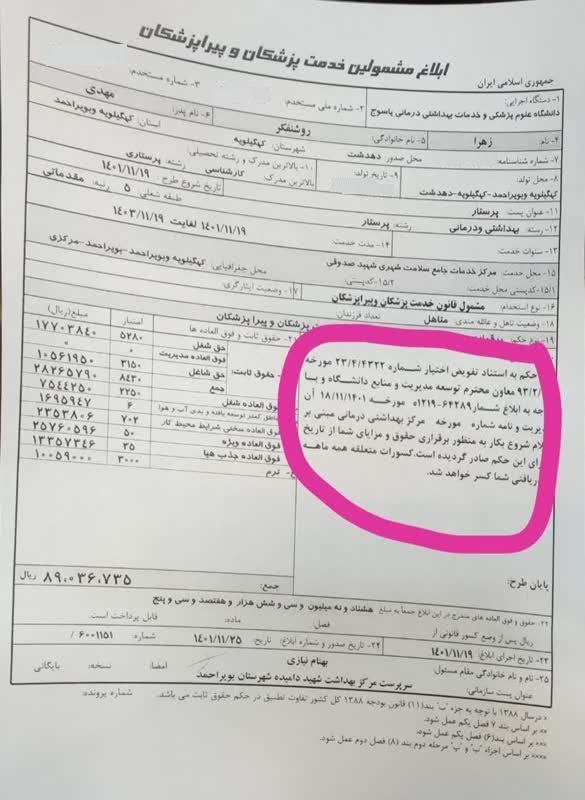 ابلاغ مشمولین خدمت پزشکان و پیراپزشکان
جمهوری اسلامی ایران
۱- دستگاه اجرایی:
دانشگاه علوم پزشکی و خدمات بهداشتی درمانی یاسوج
۲- شماره ملی مستخدم:
۳- شماره مستخدم:
۴- نام: زهرا
۵- نام خانوادگی: روشنفکر
۶- نام پدر: مهدی
۷- شماره شناسنامه:
محل صدور: دهدشت
شهرستان: کهگیلویه
استان: کهگیلویه وبویراحمد
۸- محل تولد:
کهگیلویه وبویراحمد-کهگیلویه-دهدشت
۹- تاریخ تولد:
۱۰- بالاترین مدرک و رشته تحصیلی:
بالاترین مدرک: کارشناسی رشته: پرستاری
۱۱- عنوان پست: پرستار
تاریخ شروع طرح: ۱۴۰۱/۱۱/۱۹
۱۲- رسته: بهداشتی ودرمانی رشته: پرستار
طبقه شغلی: ۵ رتبه: مقدماتی
۱۳- سنوات خدمت:
۱۴- مدت خدمت: ۱۴۰۱/۱۱/۱۹ لغایت ۱۴۰۳/۱۱/۱۹
۱۵- محل خدمت: مرکز خدمات جامع سلامت شهری شهید صدوقی
۱۵/۱-کدپستی محل خدمت:
۱۵/۲-کدپستی:
محل جغرافیایی: کهگیلویه وبویراحمد-بویراحمد-مرکزی
۱۶- نوع استخدام: مشمول قانون خدمت پزشکان وپیراپزشکان
۱۷- وضعیت ایثارگری:
۱۸- وضعیت تاهل و عائله مندی: متاهل تعداد فرزندان:
۱۹- نوع حکم:
پزشکان و پیرا پزشکان
حقوق ثابت و فوق العاده ها امتیاز مبلغ(ریال)
حقوق ثابت:
حق شغل ۵۲۸۰ ۱۷۷۰۳۸۴۰
فوق العاده مدیریت
حق شاغل ۳۱۵۰ ۱۰۵۶۱۹۵۰
جمع ۸۴۳۰ ۲۸۲۶۵۷۹۰
فوق العاده شغل ۲۲۵۰ ۷۵۴۴۲۵۰
مناطق کمتر توسعه یافته و بدی آب و هوا ۱۶۹۵۹۴۷
فوق العاده سختی شرایط محیط کار ۷۰۲ ۲۳۵۳۸۰۶
فوق العاده ویژه ۵۰ ۲۵۷۶۰۵۹۶
۳۵ ۱۳۳۵۷۳۴۶
فوق العاده جذب هیا ۳۰۰۰ ۱۰۰۵۹۰۰۰
ترم
حکم به استناد تفویض اختیار شماره ۲۳/۴/۴۳۲۲ مورخه
۹۳/۲/ معاون محترم توسعه مدیریت و منابع دانشگاه و با
جه به ابلاغ شماره ۵۱۲۱۹-۶۴۲۸۹ مورخه ۱۸/۱۱/۱۴۰۱ آن
یریت و نامه شماره مورخه مرکز بهداشتی درمانی مبنی بر
لام شروع بکار به منظور برقراری حقوق و مزایای شما از تاریخ
رای این حکم صادر گردیده است.کسورات متعلقه همه ماهه
دریافتی شما کسر خواهد شد.
پایان طرح:
جمع: ۸۹,۰۳۶,۷۳۵ ریال
۲۲- حقوق و فوق العاده های مندرج در این ابلاغ جمعاً به مبلغ هشتاد و نه میلیون و سی و شش هزار و هفتصد و سی و پنج
ریال پس از وضع کسور قانونی از فصل: ماده: قابل پرداخت است.
۲۳- تاریخ اجرای ابلاغ: ۱۴۰۱/۱۱/۱۹
۲۴- تاریخ صدور و شماره ابلاغ: تاریخ: ۱۴۰۱/۱۱/۲۵ شماره: ۶۰۰۱۱۵۱ /
۲۵- نام و نام خانوادگی مقام مسئول: بهنام نیازی
عنوان پست سازمانی: سرپرست مرکز بهداشت شهید دامیده شهرستان بویراحمد
امضا:
نسخه: بایگانی
شماره پرونده:
* درسال ۱۳۸۸ با توجه به جزء "ب" بند(۱۱) قانون بودجه ۱۳۸۸ کل کشور تفاوت تطبیق در حکم حقوق ثابت می باشد.
** بر اساس بند ۷ فصل یکم عمل شود.
*** بر اساس بند(۶) فصل یکم عمل شود.
**** بر اساس اجزاء "ب" و "پ" مرحله دوم بند (۸) فصل دوم عمل شود.